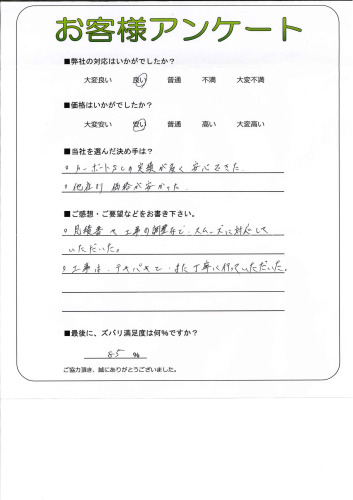 お客様アンケート
■弊社の対応はいかがでしたか?
大変良い 良い 普通 不満 大変不満
■価格はいかがでしたか?
大変安い 安い 普通 高い 大変高い
■当社を選んだ決め手は?
○カーポートなしの実績が多く安心できた.
○他店より価格が安かった.
■ご感想・ご要望などをお書き下さい。
○見積書や工事の調整など、スムーズに対応して
いただいた。
○工事は、テキパキと、また丁寧に行っていただいた。
■最後に、ズバリ満足度は何%ですか?
85 %
ご協力頂き、誠にありがとうございました。